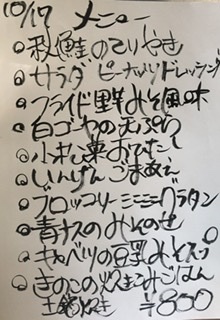 10/17 メニュー
◎秋鮭のてりやき
◎サラダ ピーナッツドレッシング
◎フライド里芋みそ風味
◎白ゴーヤの天ぷら
◎小松菜おひたし
◎いんげんごまあえ
◎ブロッコリーミニミニグラタン
◎青ナスのみそのせ
◎キャベツの豆乳みそスープ
◎きのこの炊きこみごはん
土鍋炊き ¥800